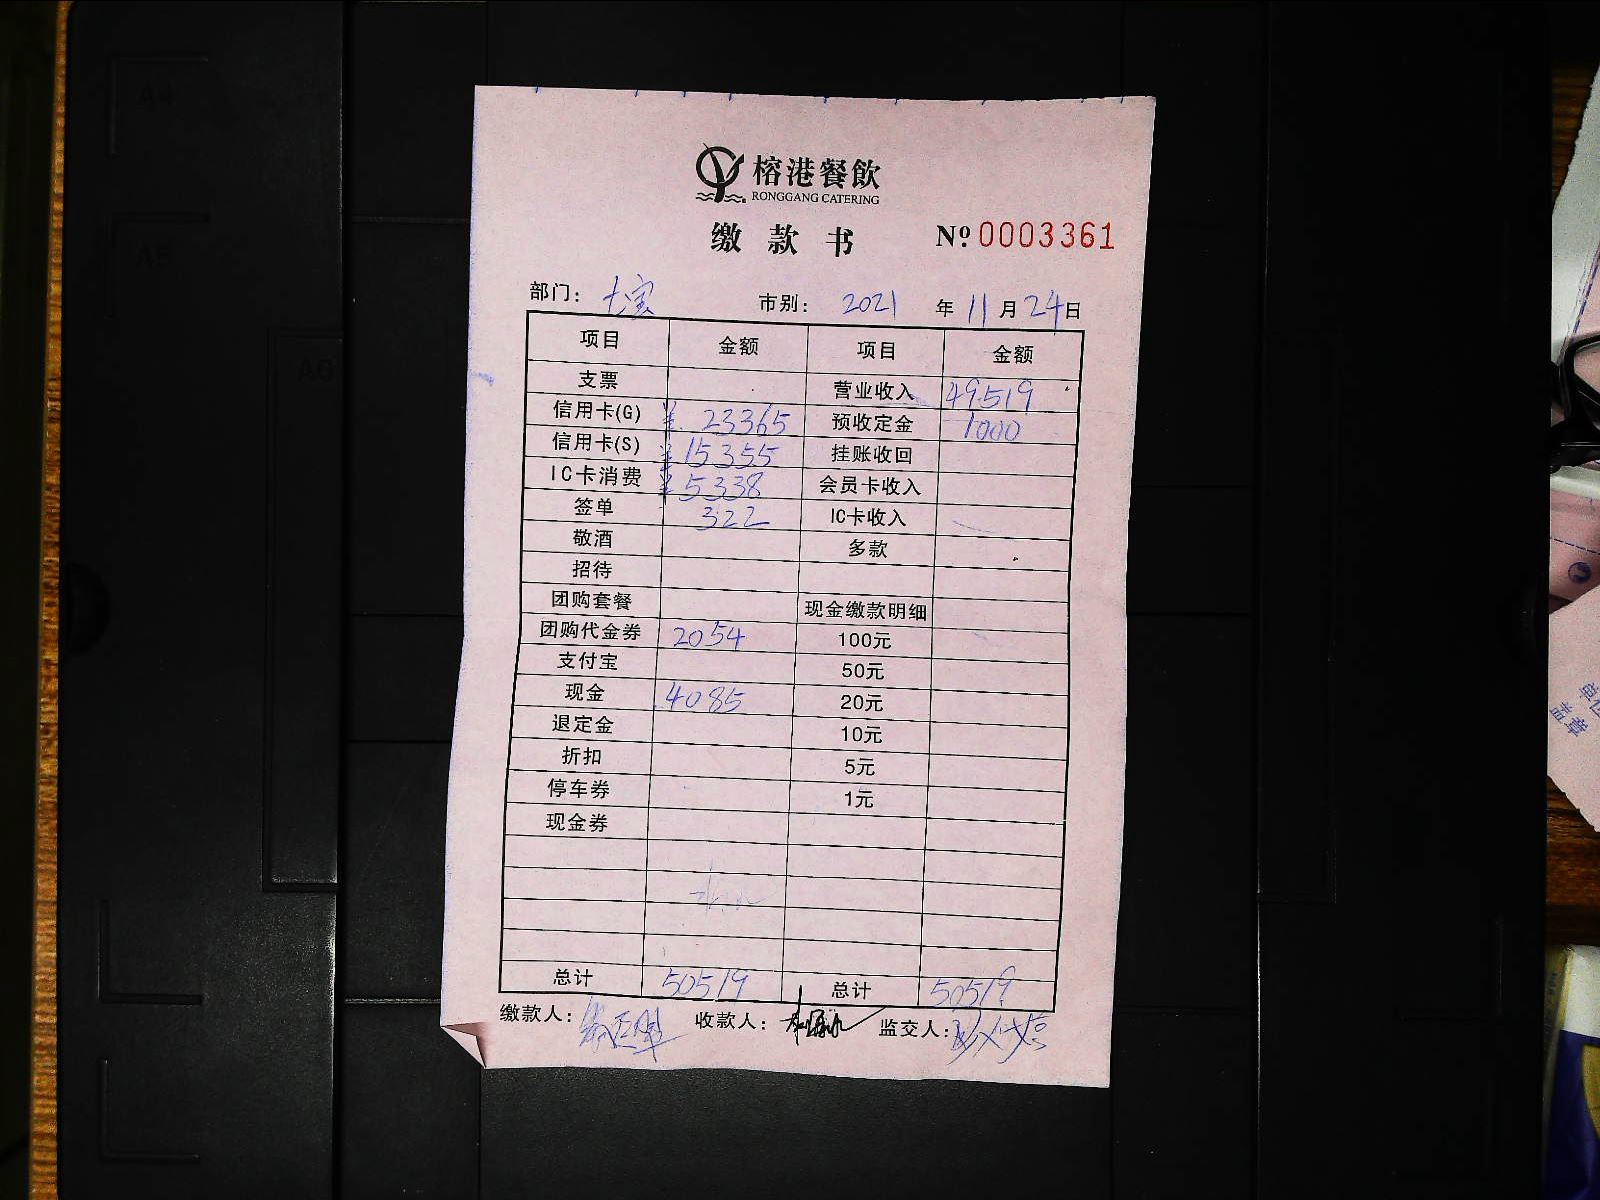 榕港餐飲
RONGGANG CATERING
缴款书 Nº 0003361
部门： 市别： 2021 年 11 月 24 日
项目 金额 项目 金额
支票 营业收入 49519
信用卡(G) ¥ 23365 预收定金 1000
信用卡(S) ¥ 15355 挂账收回
IC卡消费 ¥ 5338 会员卡收入
签单 322 IC卡收入
敬酒 多款
招待
团购套餐 现金缴款明细
团购代金券 2054 100元
支付宝 50元
现金 4085 20元
退定金 10元
折扣 5元
停车券 1元
现金券
总计 50519 总计 50519
缴款人： 收款人： 监交人：
单位
盖章